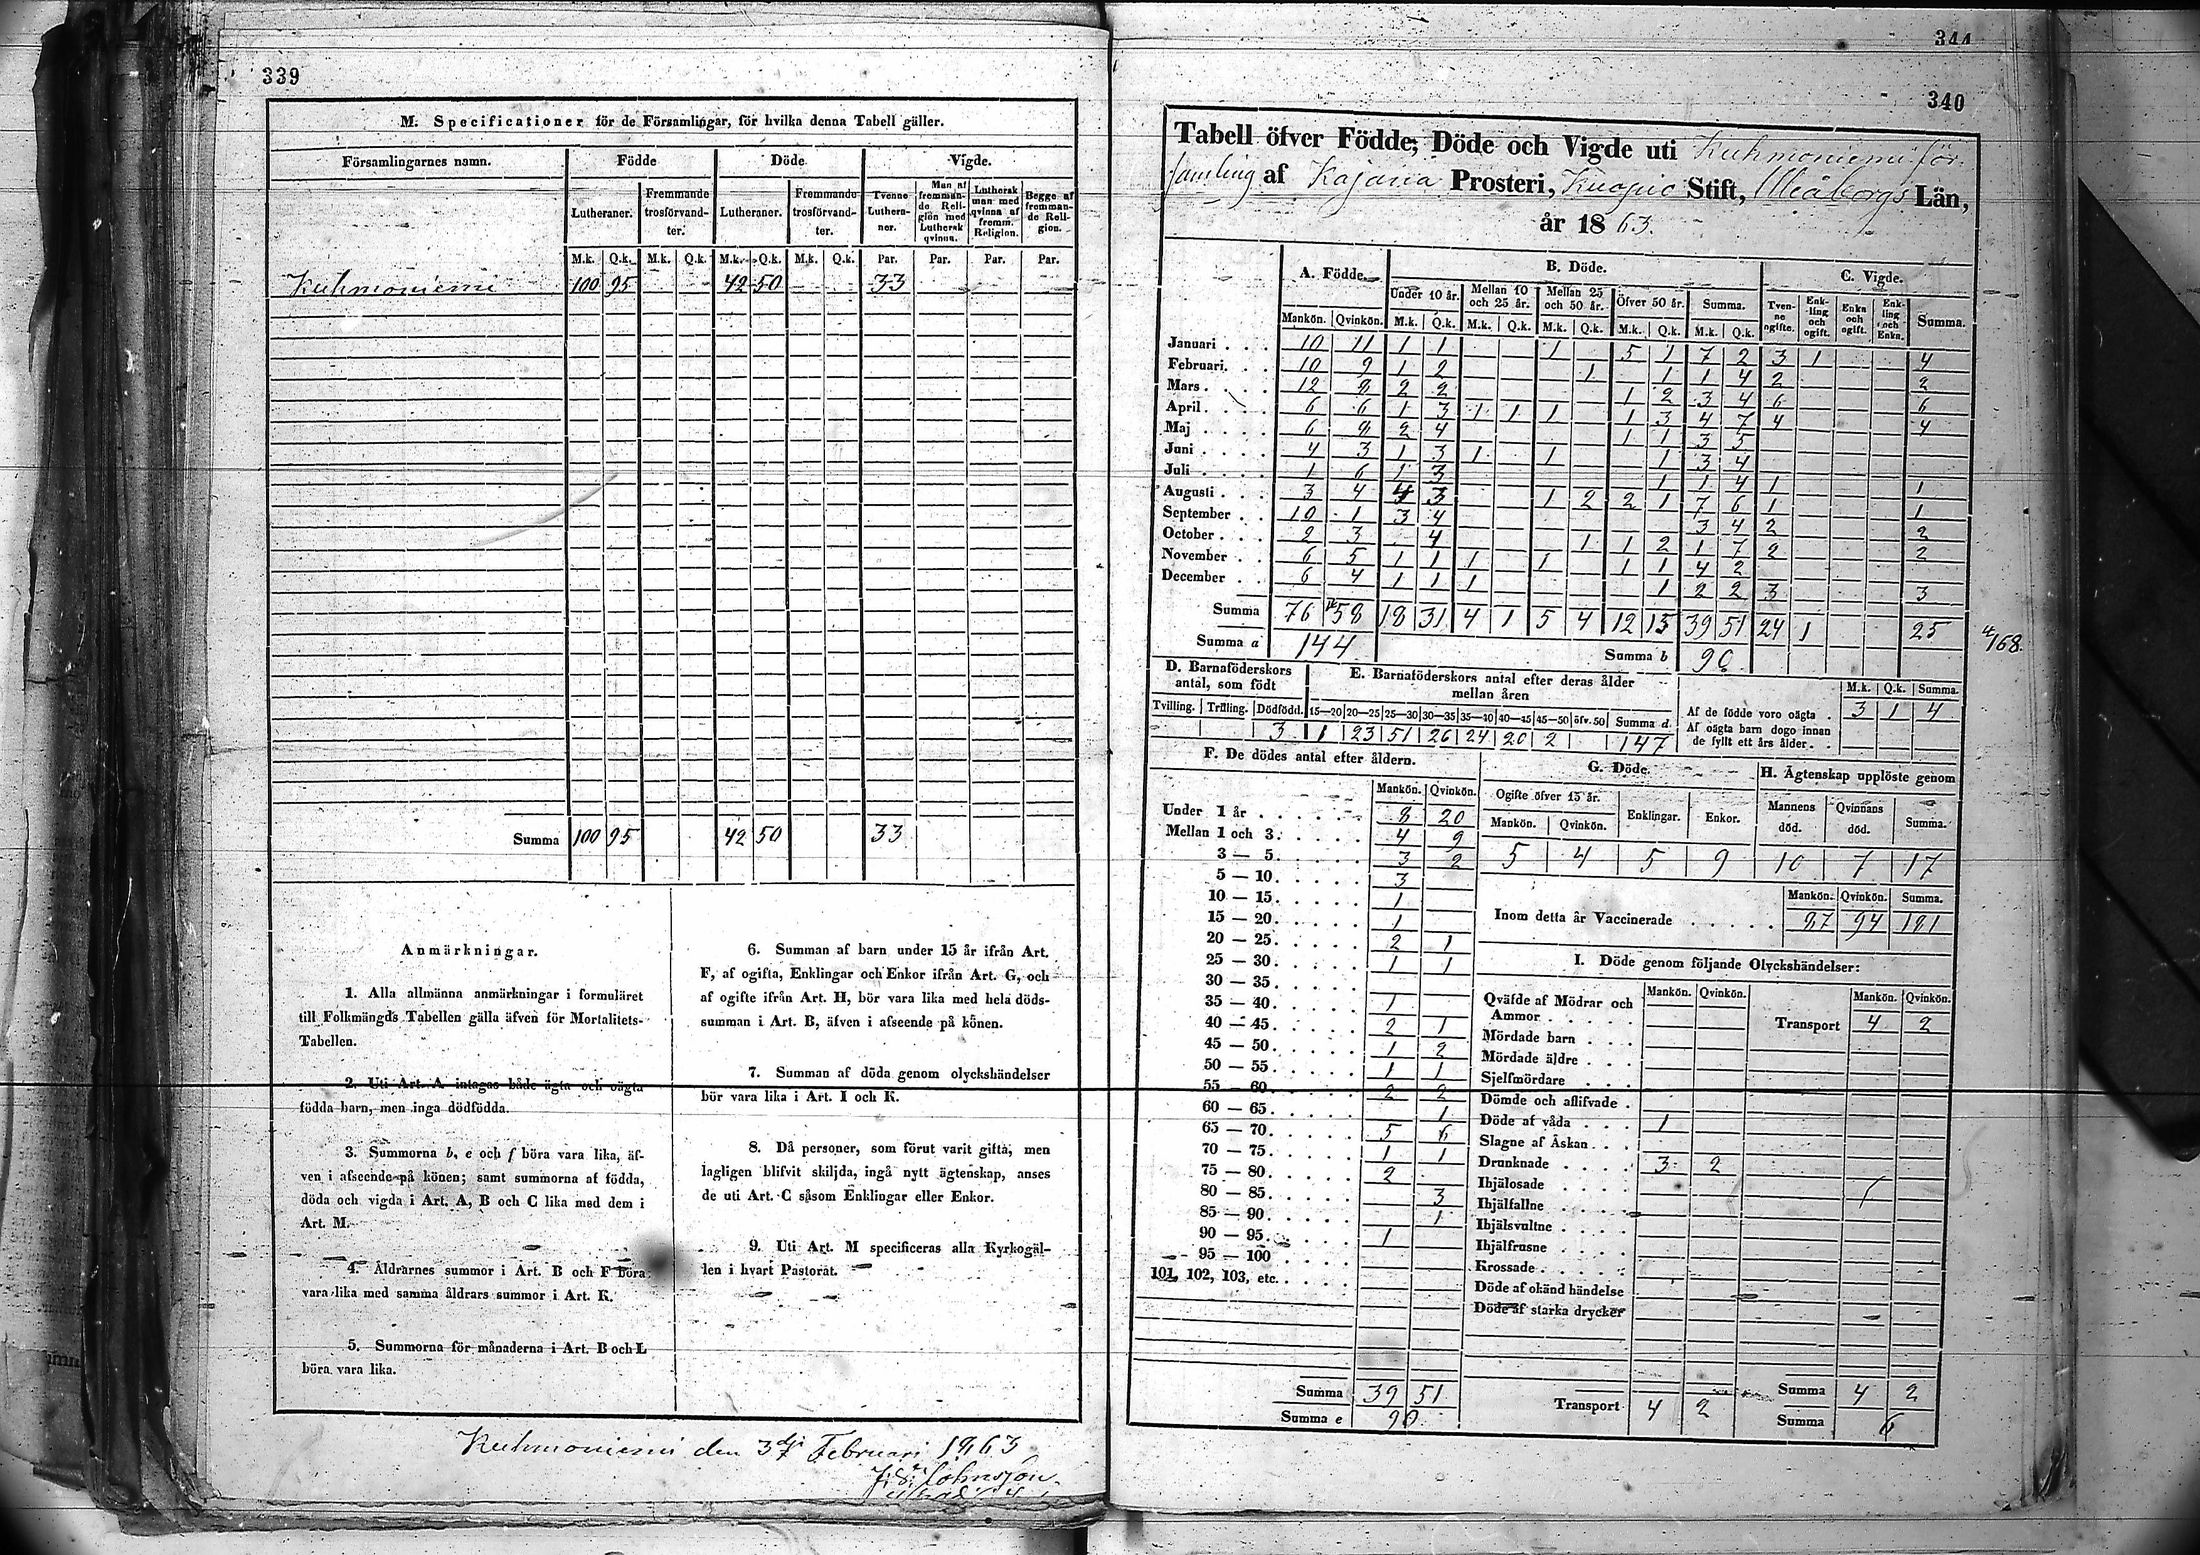 339
M. Specificationer för de Församlingar, för hvilka denna Tabell gäller.
Församlingarnes namn. Födde Döde Vigde.
Lutheraner. Fremmande trosförvandter. Lutheraner. Fremmande trosförvandter. Tvenne Lutheraner. Man af fremmande Religion med Luthersk qvinna. Luthersk man med qvinna af fremm. Religion. Begge af fremmande Religion.
M.k. Q.k. M.k. Q.k. M.k. Q.k. M.k. Q.k. Par. Par. Par. Par.
Kuhmoniemi 100 95 42 50 33
Summa 100 95 42 50 33
Anmärkningar.
1. Alla allmänna anmärkningar i formuläret
till Folkmängds Tabellen gälla äfven för Mortalitets-
Tabellen.
2. Uti Art. A intagas både ägta och oägta
födda barn, men inga dödfödda.
3. Summorna b, e och f böra vara lika, äf-
ven i afseende på könen; samt summorna af födda,
döda och vigda i Art. A, B och C lika med dem i
Art. M.
4. Åldrarnes summor i Art. B och F böra
vara lika med samma åldrars summor i Art. K.
5. Summorna för månaderna i Art. B och L
böra vara lika.
6. Summan af barn under 15 år ifrån Art.
F, af ogifta, Enklingar och Enkor ifrån Art. G, och
af ogifte ifrån Art. H, bör vara lika med hela döds-
summan i Art. B, äfven i afseende på könen.
7. Summan af döda genom olyckshändelser
bör vara lika i Art. I och K.
8. Då personer, som förut varit gifta, men
lagligen blifvit skiljda, ingå nytt ägtenskap, anses
de uti Art. C såsom Enklingar eller Enkor.
9. Uti Art. M specificeras alla Kyrkogäl-
len i hvart Pastorat.
Kuhmoniemi den 3dje Februari 1863
Johnsson
344
340
Tabell öfver Födde, Döde och Vigde uti Kuhmoniemi för-
samling af Kajana Prosteri, Kuopio Stift, Uleåborgs Län,
år 1863.
A. Födde. B. Döde. C. Vigde.
Under 10 år. Mellan 10 och 25 år. Mellan 25 och 50 år. Öfver 50 år. Summa. Tvenne ogifte. Enkling och ogift. Enka och ogift. Enkling och Enka. Summa.
Mankön. Qvinkön. M.k. Q.k. M.k. Q.k. M.k. Q.k. M.k. Q.k. M.k. Q.k.
Januari 10 11 1 1 1 5 1 7 2 3 1 4
Februari 10 9 1 2 1 1 1 4 2 2
Mars 12 8 2 2 1 2 3 4 6 6
April 6 6 1 3 1 1 1 1 3 4 7 4 4
Maj 6 8 2 4 1 1 3 5
Juni 4 3 1 3 1 1 1 3 4
Juli 1 6 1 3 1 1 4 1 1
Augusti 3 4 4 3 1 2 2 1 7 6 1 1
September 10 1 3 4 3 4 2 2
October 2 3 4 1 1 2 1 7 2 2
November 6 5 1 1 1 1 1 1 4 2
December 6 4 1 1 1 1 2 2 3 3
Summa 76 58 18 31 4 1 5 4 12 15 39 51 24 1 25
168.
Summa a 144 Summa b 90
D. Barnaföderskors antal, som födt
E. Barnaföderskors antal efter deras ålder mellan åren
Tvilling. Trilling. Dödfödd. 15—20 20—25 25—30 30—35 35—40 40—45 45—50 öfv. 50 Summa d
3 1 23 51 26 24 20 2 147
M.k. Q.k. Summa.
Af de födde voro oägta 3 1 4
Af oägta barn dogo innan
de fyllt ett års ålder
F. De dödes antal efter åldern.
Mankön. Qvinkön.
Under 1 år 8 20
Mellan 1 och 3 4 9
3 — 5 3 2
5 — 10 3
10 — 15 1
15 — 20 1
20 — 25 2 1
25 — 30 1 1
30 — 35
35 — 40 1
40 — 45 2 1
45 — 50 1 2
50 — 55 1 1
55 — 60 2 2
60 — 65 1
65 — 70 5 6
70 — 75 1 1
75 — 80 2
80 — 85 3
85 — 90 1
90 — 95 1
95 — 100
101, 102, 103, etc.
Summa 39 51
Summa e 90
G. Döde.
Ogifte öfver 15 år. Enklingar. Enkor.
Mankön. Qvinkön.
5 4 5 9
H. Ägtenskap upplöste genom
Mannens död. Qvinnans död. Summa.
10 7 17
Mankön. Qvinkön. Summa.
Inom detta år Vaccinerade 87 94 181
I. Döde genom följande Olyckshändelser:
Mankön. Qvinkön. Mankön. Qvinkön.
Qväfde af Mödrar och
Ammor
Transport 4 2
Mördade barn
Mördade äldre
Sjelfmördare
Dömde och aflifvade
Döde af våda 1
Slagne af Åskan
Drunknade 3 2
Ihjälosade
Ihjälfallne
Ihjälsvultne
Ihjälfrusne
Krossade
Döde af okänd händelse
Döde af starka drycker
Transport 4 2
Summa 4 2
Summa 6